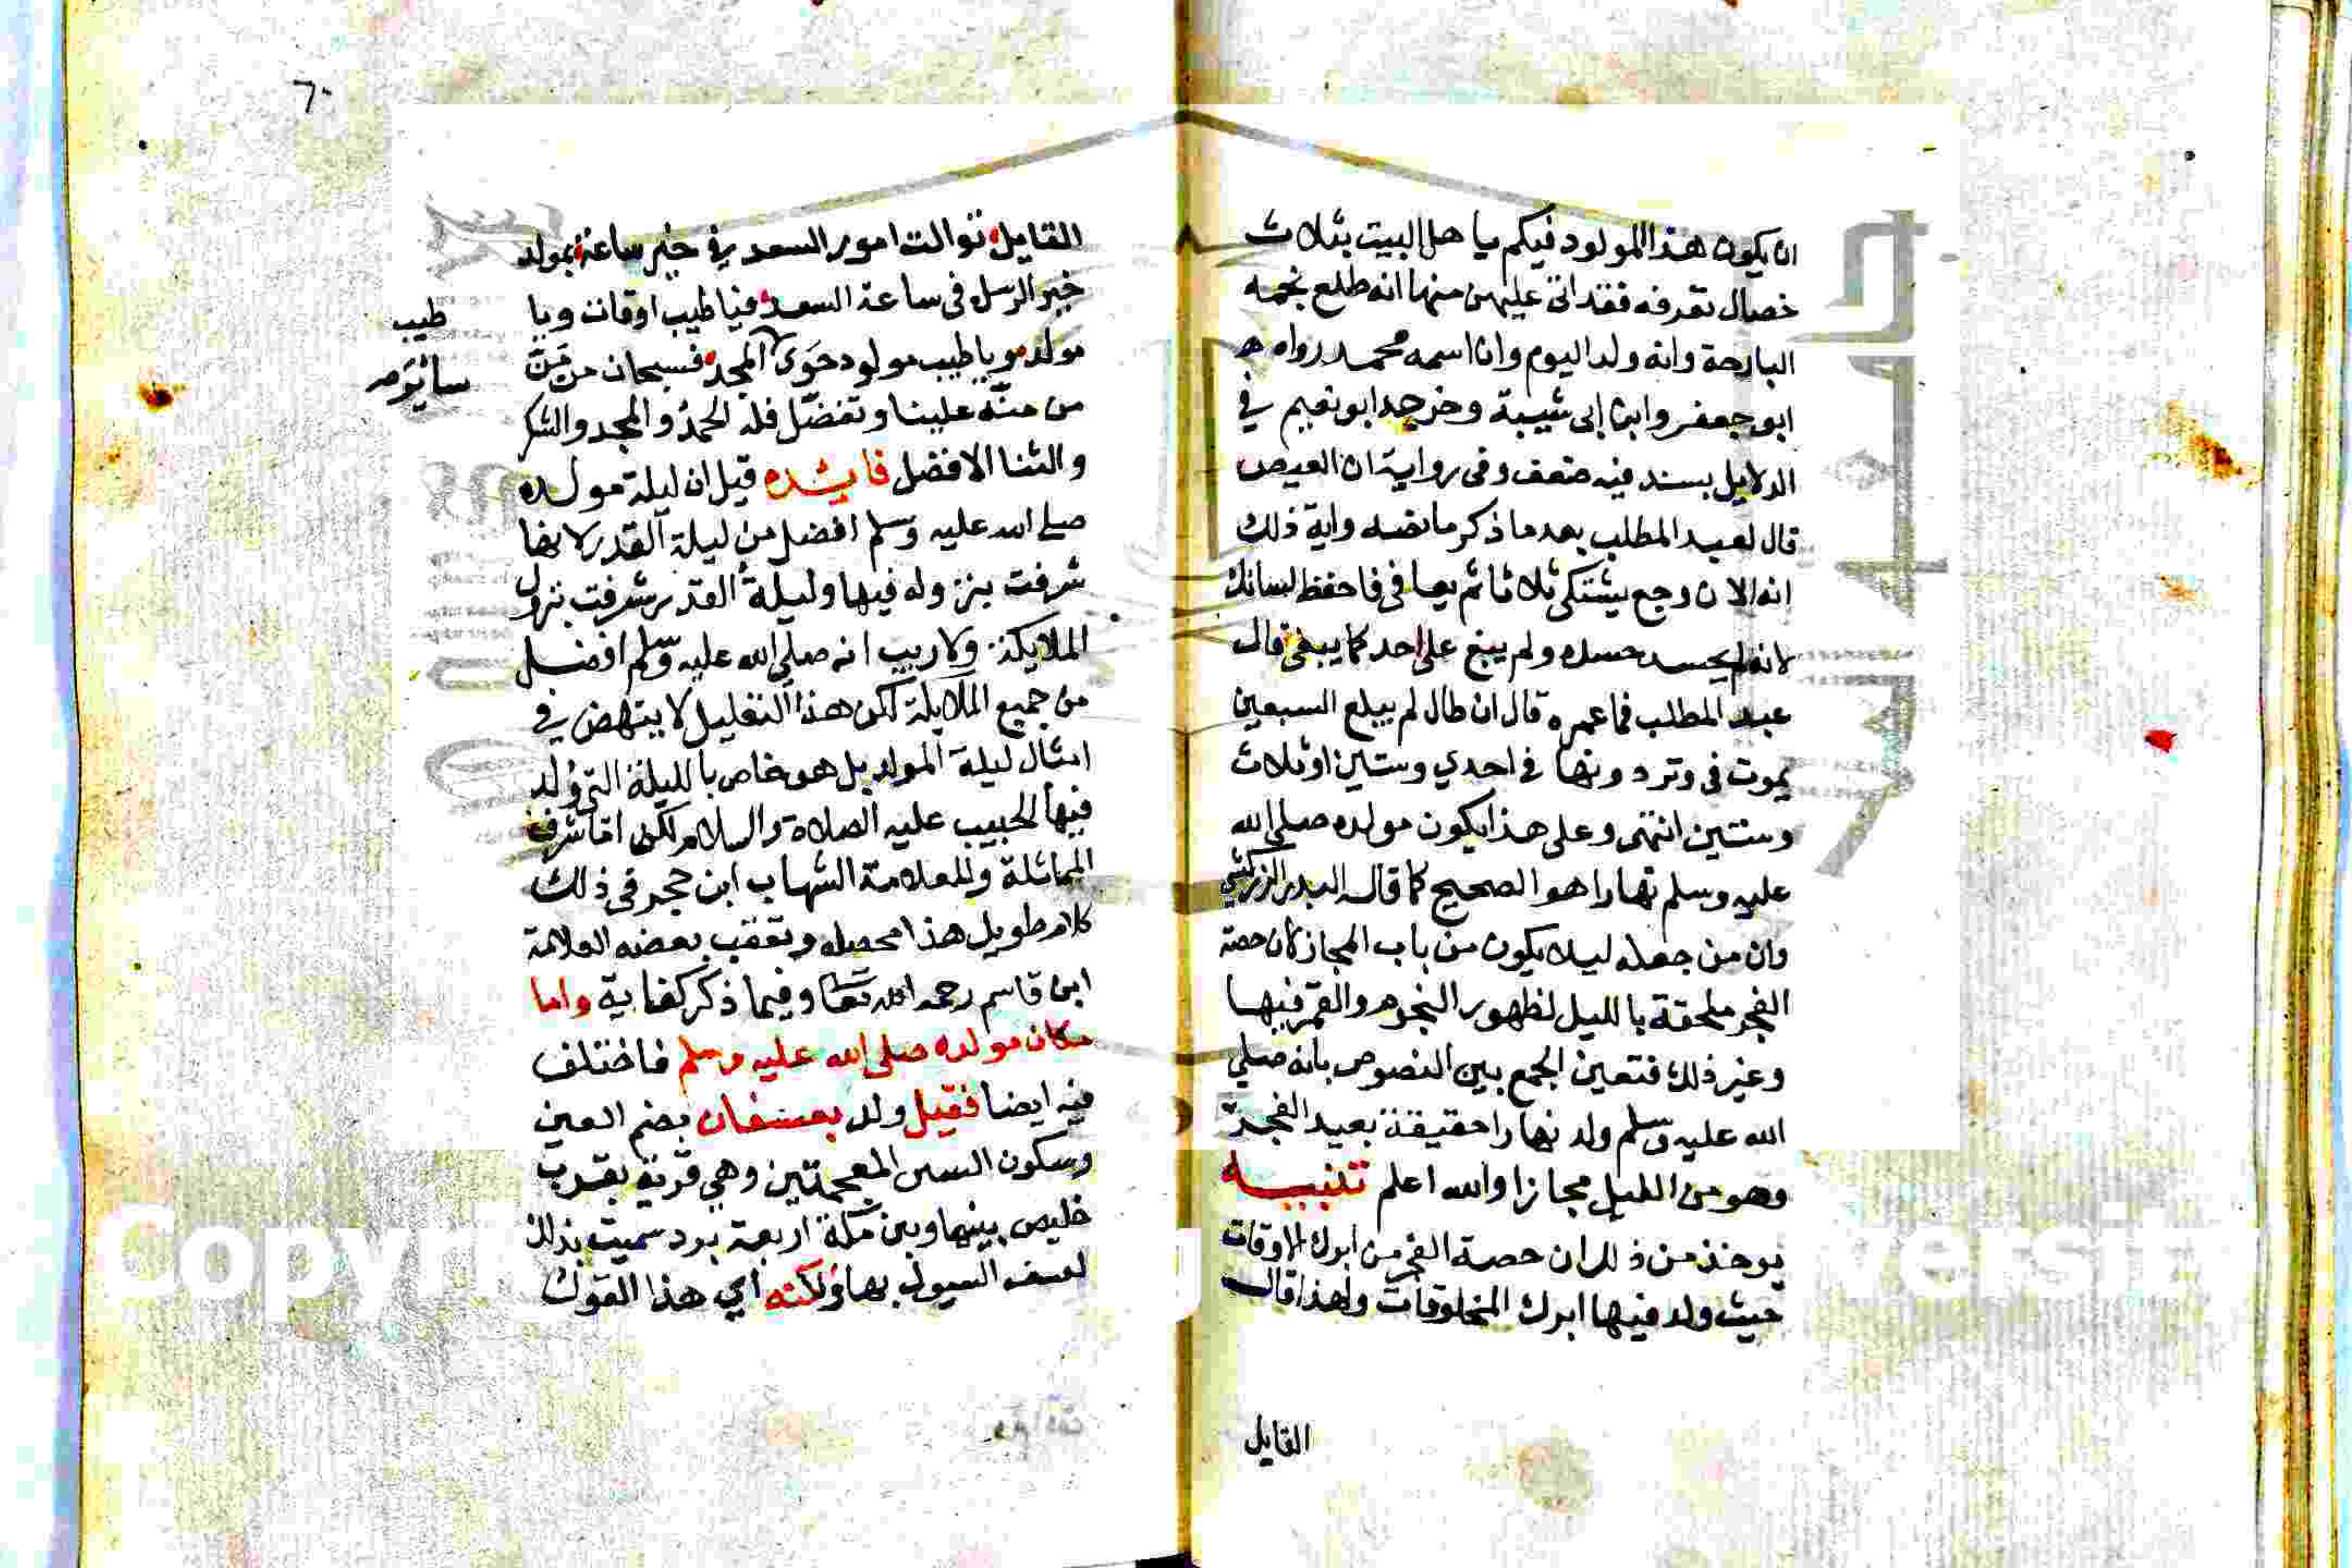 ان يكون هذا المولود فيكم يا هل البيت بثلاث
خصال تعرفه فقد اتى عليهن منها انه طلع نجمه
البارحة وانه ولد اليوم وان اسمه محمد رواه
ابو جعفر وابن ابى شيبة وخرجه ابو نعيم في
الدلايل بسند فيه ضعف وفى رواية ان العيص
قال لعبد المطلب بعد ما ذكر ما نصه واية ذلك
انه الان وجع يشتكى ثلاثا ثم يعافى فاحفظ لسانك
لانه لم يحسد حسده ولم يبغ على احد كما يبغى قال
عبد المطلب فما عمره قال ان طال لم يبلغ السبعين
يموت فى وتر دونها فى احدي وستين او ثلاث
وستين انتهى وعلى هذا يكون مولده صلى الله
عليه وسلم نهارا هو الصحيح كما قال البدر الزركشي
وان من جعله ليلا يكون من باب المجاز لان حصة
الفجر ملحقة بالليل لظهور النجوم والقمر فيها
وغير ذلك فتعين الجمع بين النصوص بانه صلي
الله عليه وسلم ولد نهارا حقيقة بعيد الفجر
وهو من الليل مجازا والله اعلم تنبيه
يوخذ من ذلك ان حصة الفجر من ابرك الاوقات
حيث ولد فيها ابرك المخلوقات ولهذا قال
القايل
٦٠
القايل توالت امور السعد في خير ساعة بمولد
خير الرسل فى ساعة السعد فيا طيب اوقات ويا
طيب
مولد ويا طيب مولود حوى المجد فسبحان من منّ
من منّه علينا وتفضّل فله الحمدُ والمجد والشكر
والثنا الافضل فايده قيل ان ليلة مولده
صلى الله عليه وسلم افضل من ليلة القدر لانها
شرفت بنزوله فيها وليلة القدر شرفت بنزول
الملايكة ولا ريب انه صلى الله عليه وسلم افضل
من جميع الملايكة لكن هذا التعليل لا ينهض في
امثال ليلة المولد بل هو خاص بالليلة التى وُلد
فيها الحبيب عليه الصلاة والسلام لكن
المماثلة وللعلامة الشهاب ابن حجر فى ذلك
كلام طويل هذا محصله وتعقب بعضه العلامة
ابن قاسم رحمه الله تعا وفيما ذكر كفاية واما
مكان مولده صلى الله عليه وسلم فاختلف
فيه ايضا فقيل ولد بعسفان بضم العين
وسكون السين المعجمتين وهي قرية بقرب
خليص بينها وبين مكة اربعة برد سميت بذلك
لعسف السيول بها ولكنه اي هذا القول